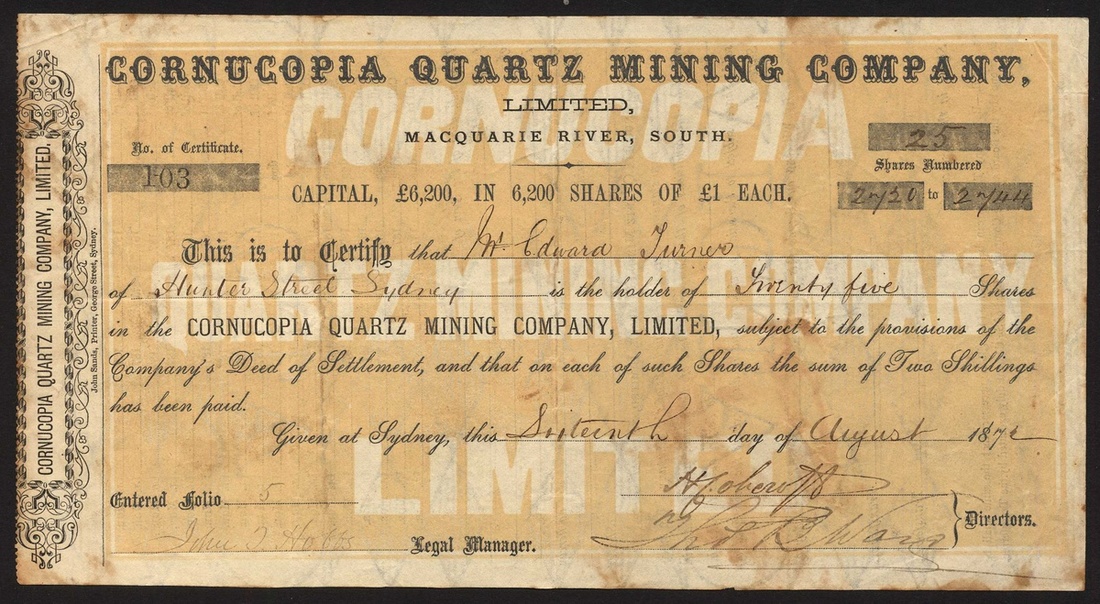 CORNUCOPIA QUARTZ MINING COMPANY,
LIMITED,
MACQUARIE RIVER, SOUTH.
No. of Certificate.
103
25
Shares Numbered
2720 to 2744
CAPITAL, £6,200, IN 6,200 SHARES OF £1 EACH.
This is to Certify that Mr Edward Turner
of Hunter Street Sydney is the holder of Twenty five Shares
in the CORNUCOPIA QUARTZ MINING COMPANY, LIMITED, subject to the provisions of the
Company's Deed of Settlement, and that on each of such Shares the sum of Two Shillings
has been paid.
Given at Sydney, this Sixteenth day of August 1872
Entered Folio 5
Directors.
John Legal Manager.
CORNUCOPIA QUARTZ MINING COMPANY, LIMITED.
John Sands, Printer, George Street, Sydney.
CORNUCOPIA
QUARTZ MINING COMPANY
LIMITED